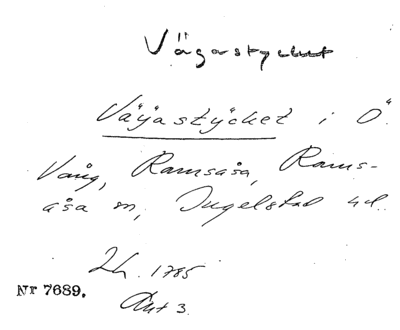 Vägastycket
Väyastÿcket i Ö.
Vång, Ramsåsa, Rams-
åsa sn, Ingelstad hd.
Lh. 1785
Akt 3.
Nr 7689.